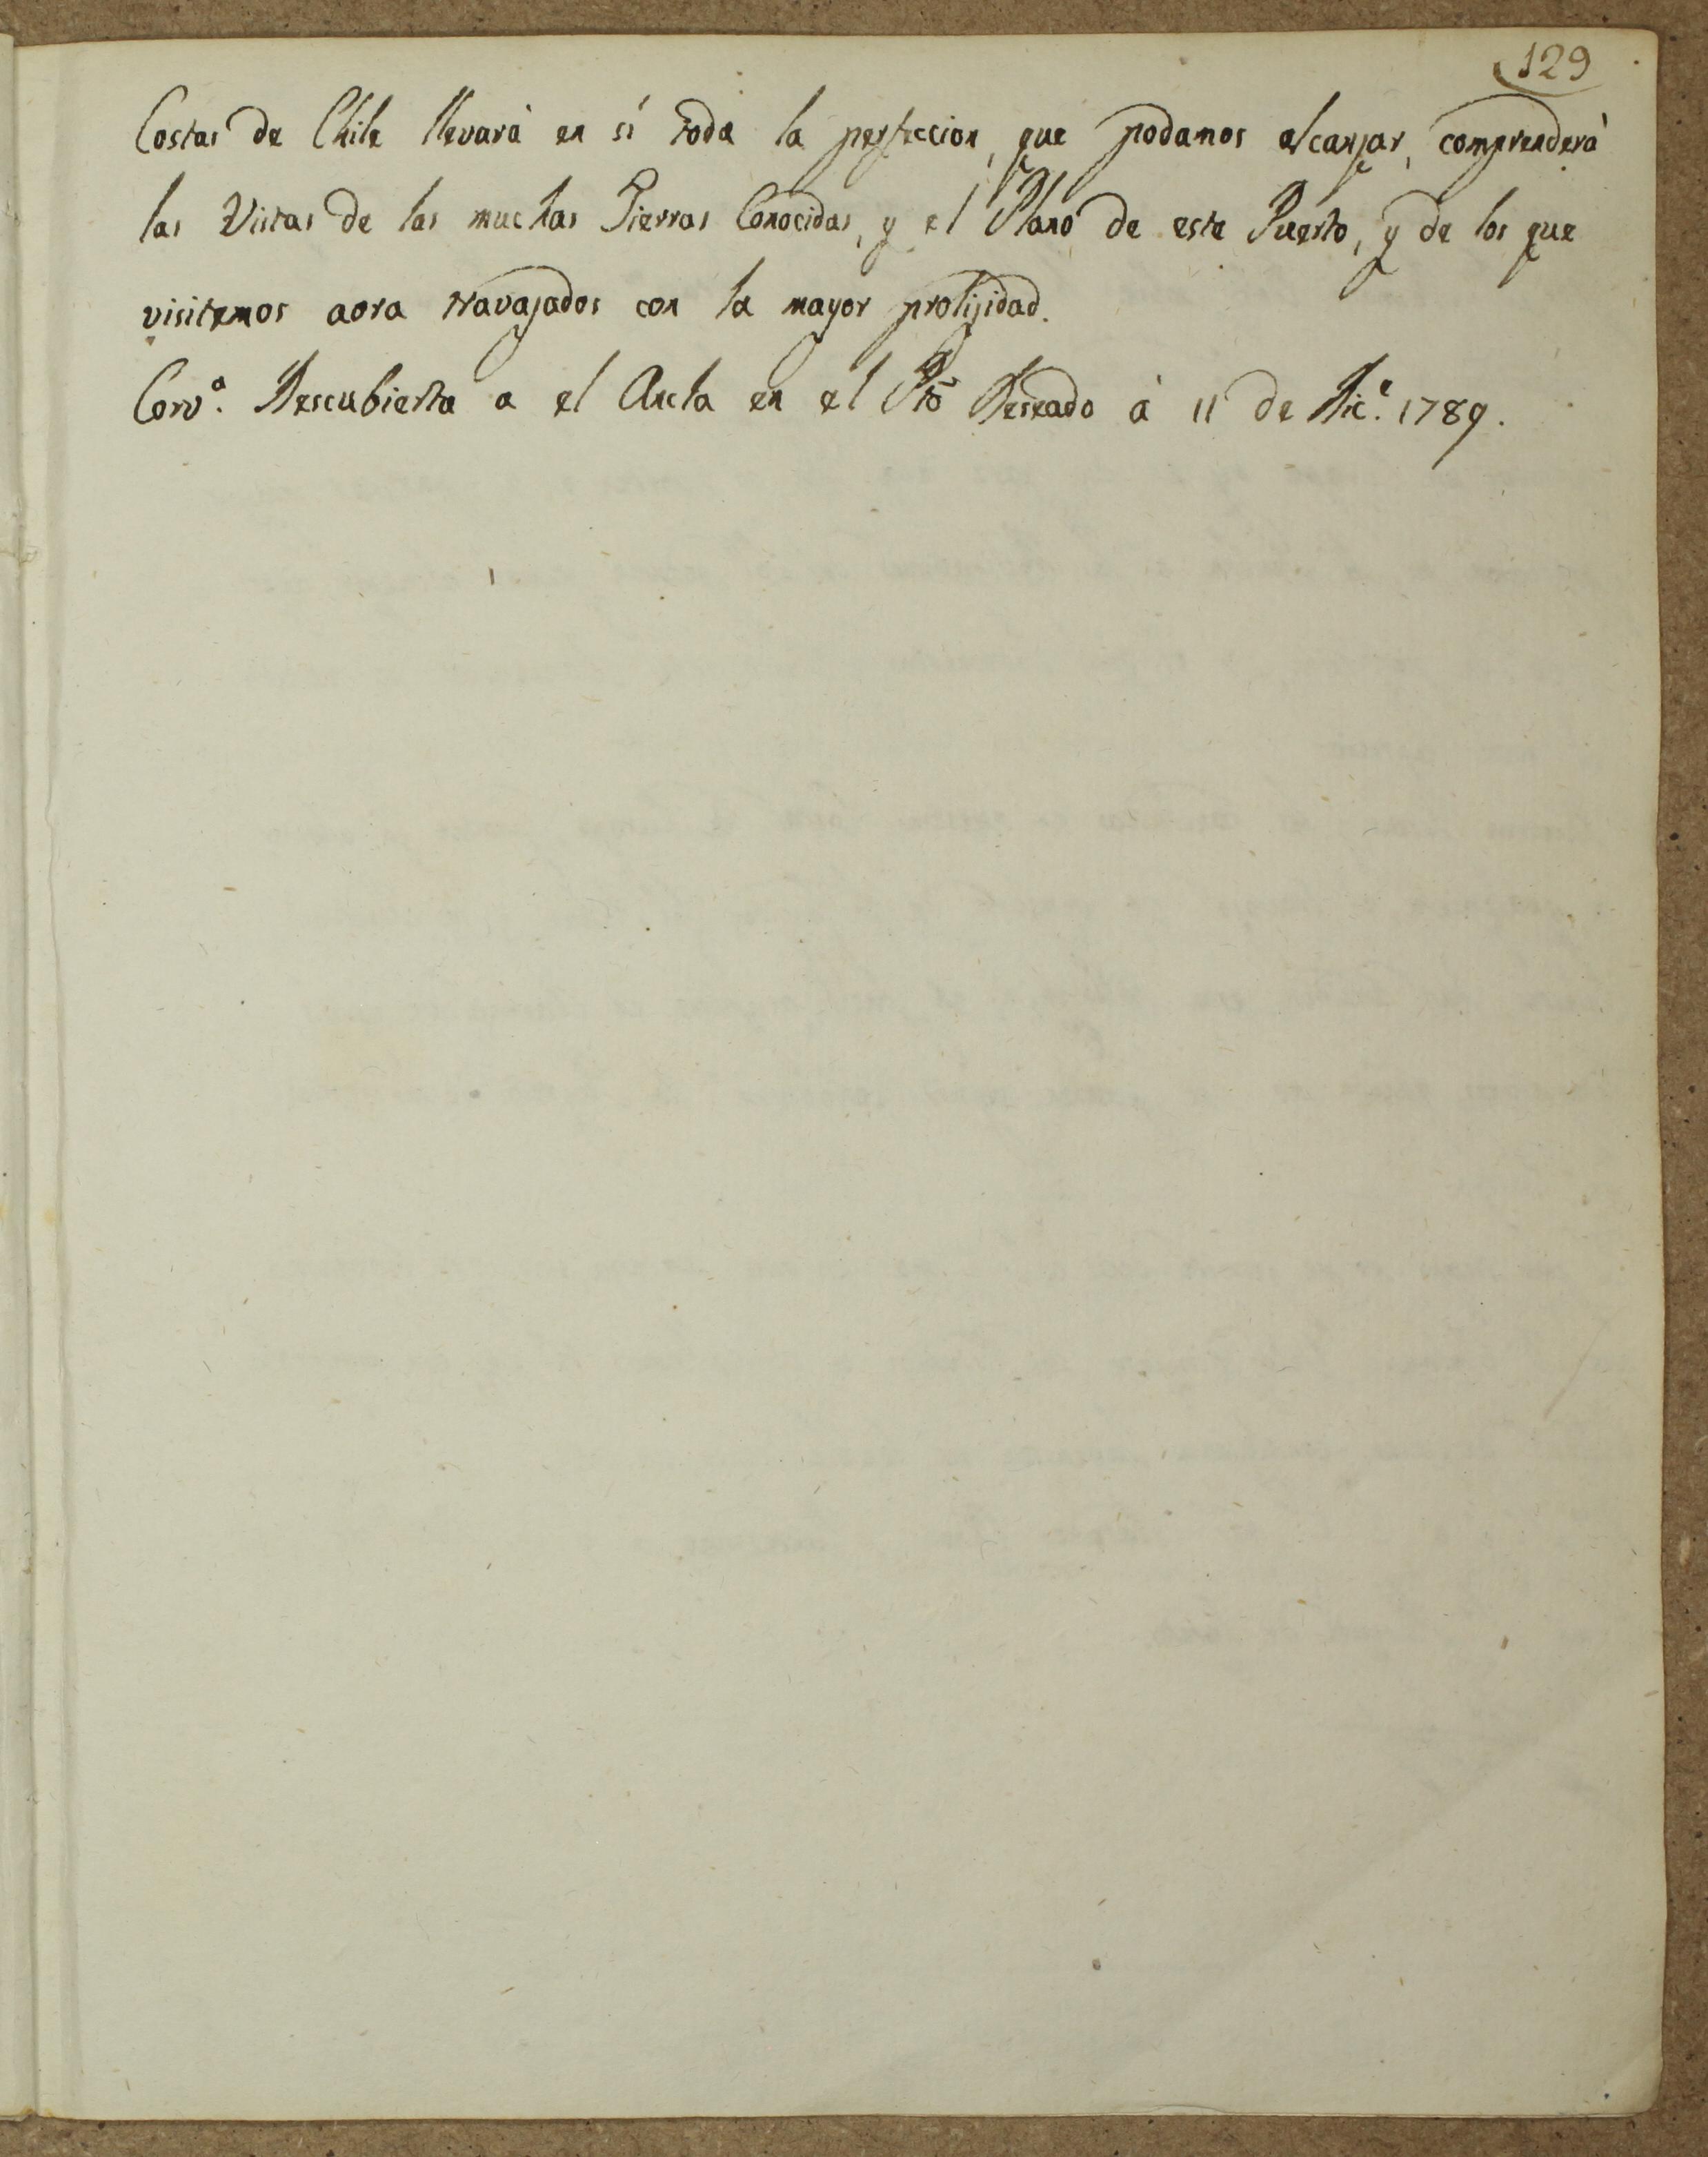 129
Costas de Chile llevarà en sì toda la perfeccion, que podamos alcanzar, comprenderà
las Vistas de las muchas Tierras Conocidas, y el Plano de este Puerto, y de los que
visitemos aora travajados con la mayor prolijidad.
Corv.ª Descubierta a el Ancla en el P.to Deseado à 11 de Dic.e 1789.